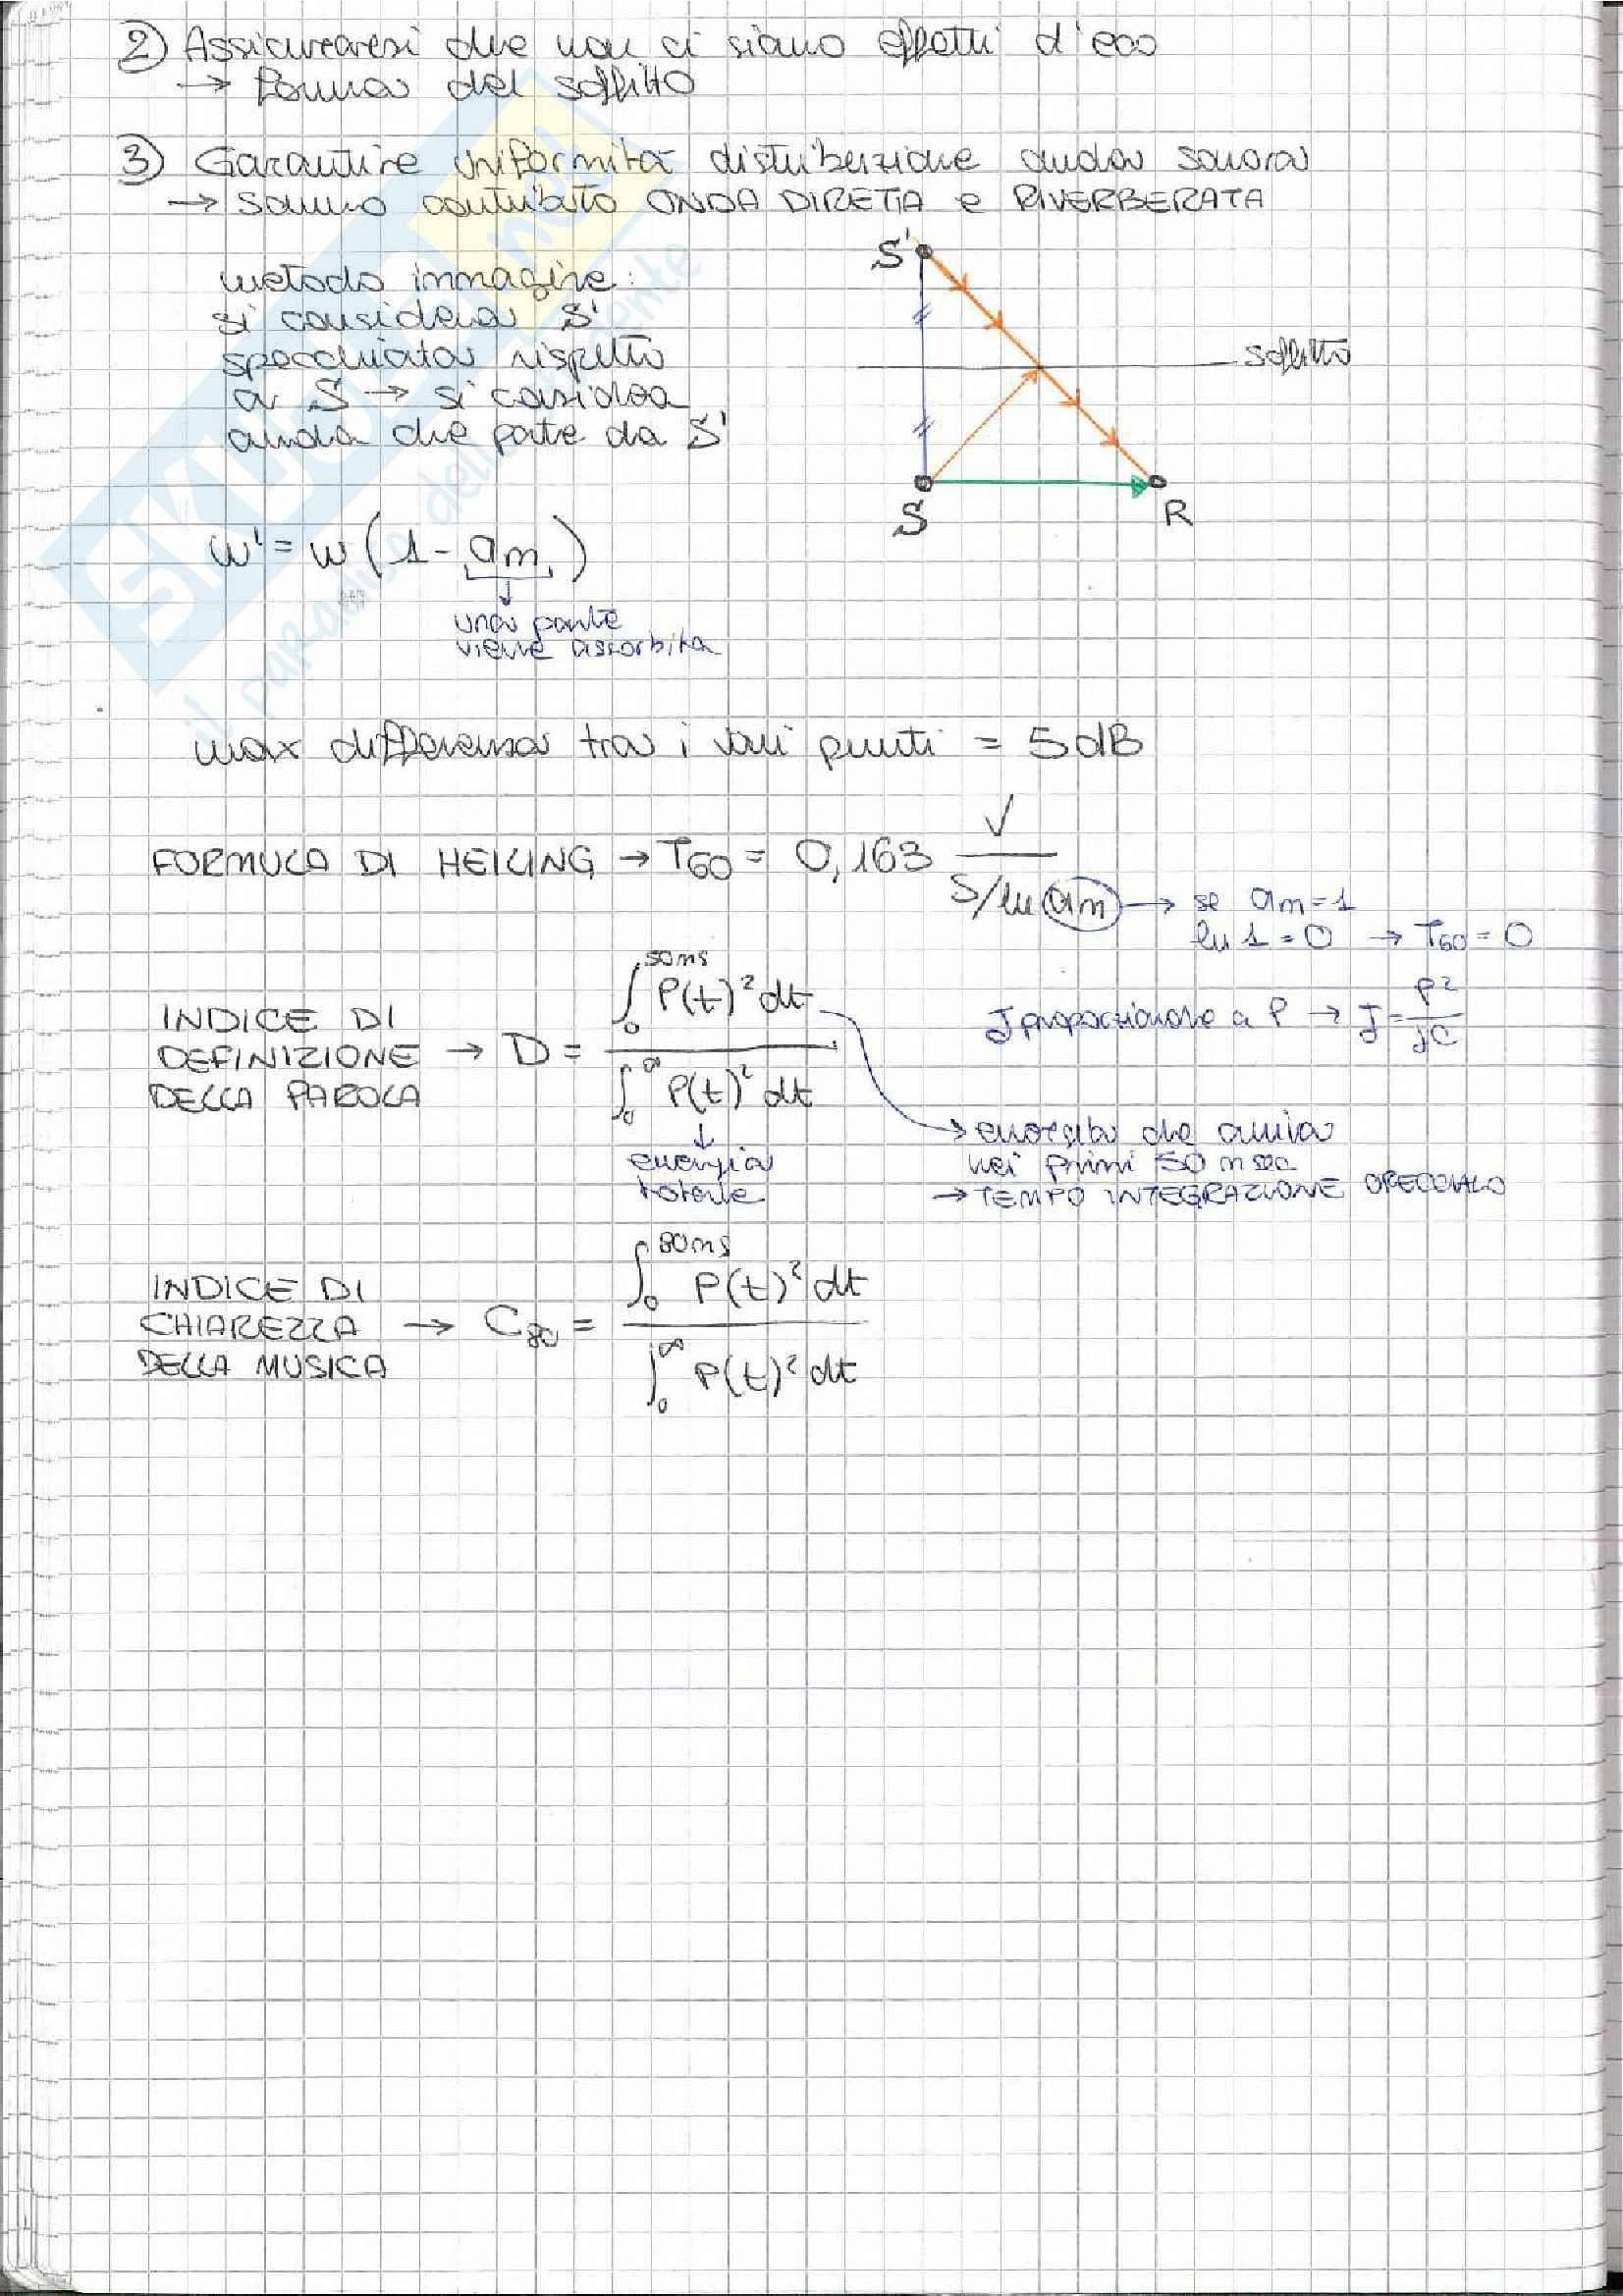 2) Assicurarsi che non ci siano effetti d'eco
→ forma del soffitto
3) Garantire uniformità distribuzione onda sonora
→ sommo contributo ONDA DIRETTA e RIVERBERATA
metodo immagine:
si considera S'
specchiata rispetto
a S → si considera
onda che parte da S'
S'
soffitto
S
R
w' = w (1 - am)
una parte
viene assorbita
max differenza tra i vari punti = 5 dB
FORMULA DI HEILING → T60 = 0,163 V / S/ln am → se am = 1
ln 1 = 0 → T60 = 0
INDICE DI
DEFINIZIONE
DELLA PAROLA
→ D = ∫₀^50ms P(t)² dt / ∫₀^∞ P(t)² dt
energia
totale
J proporzionale a P → J = P² / ρC
→ energia che arriva
nei primi 50 msec
→ TEMPO INTEGRAZIONE ORECCHIO
INDICE DI
CHIAREZZA
DELLA MUSICA
→ C80 = ∫₀^80ms P(t)² dt / ∫₀^∞ P(t)² dt
SKUOLA.net
il paradiso dello studente